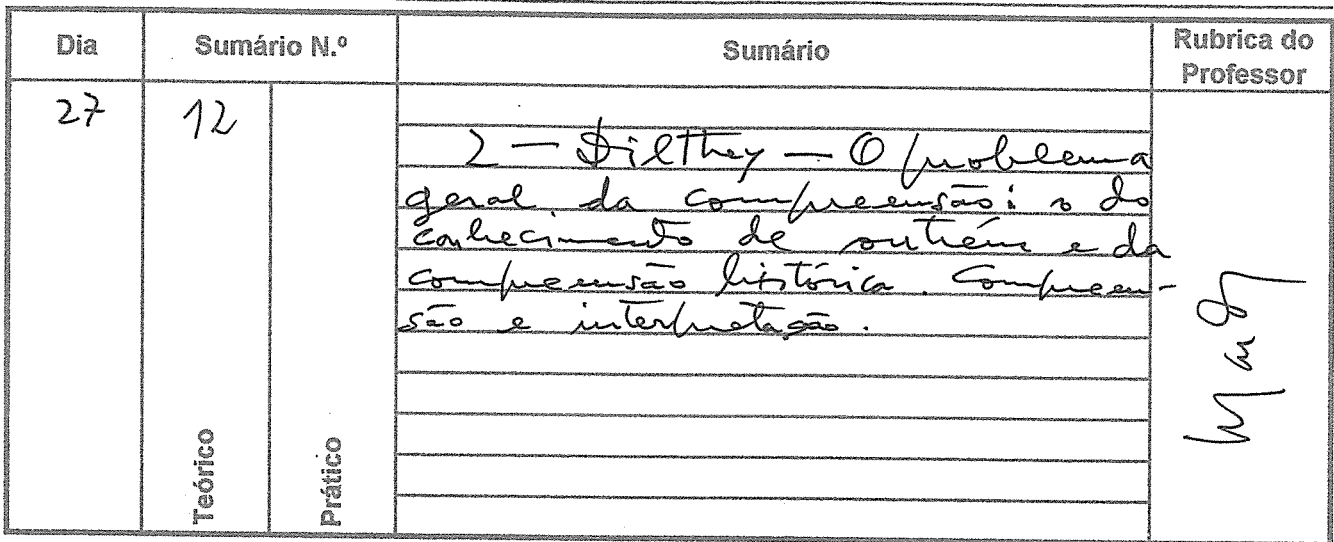 Dia Sumário N.º Sumário Rubrica do Professor
27 12
2 — Dilthey — O problema
geral da compreensão: o do
conhecimento de outrém e da
compreensão histórica. Compreen-
são e interpretação.
Teórico Prático